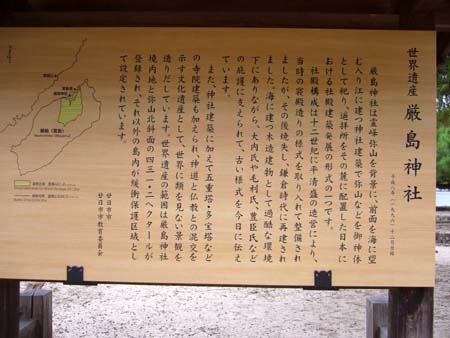 世界遺産 厳島神社
平成八年(一九九六)十二月登録
厳島神社は霊峰弥山を背景に、前面を海に望
む入り江に建つ神社建築で弥山などを御神体
として祀り、遥拝所をその麓に配置した日本に
おける社殿建築発展の形式の一つです。
社殿構成は十二世紀に平清盛の造営により、
当時の寝殿造りの様式を取り入れて整備され
ましたが、その後焼失し、鎌倉時代に再建され
ました。海に建つ木造建物として過酷な環境
下にありながら、大内氏や毛利氏、豊臣氏など
の庇護に支えられて、古い様式を今日に伝え
ています。
また、神社建築に加えて五重塔・多宝塔など
の寺院建築も加えられ神道と仏教との混交を
示す文化遺産として、世界に類を見ない景観を
造りだしています。世界遺産の範囲は厳島神社
境内地と弥山北斜面の四三一・二ヘクタールが
登録され、それ以外の島内が緩衝保護区域とし
て設定されています。
廿日市市
廿日市市教育委員会
厳島神社
厳島(宮島)